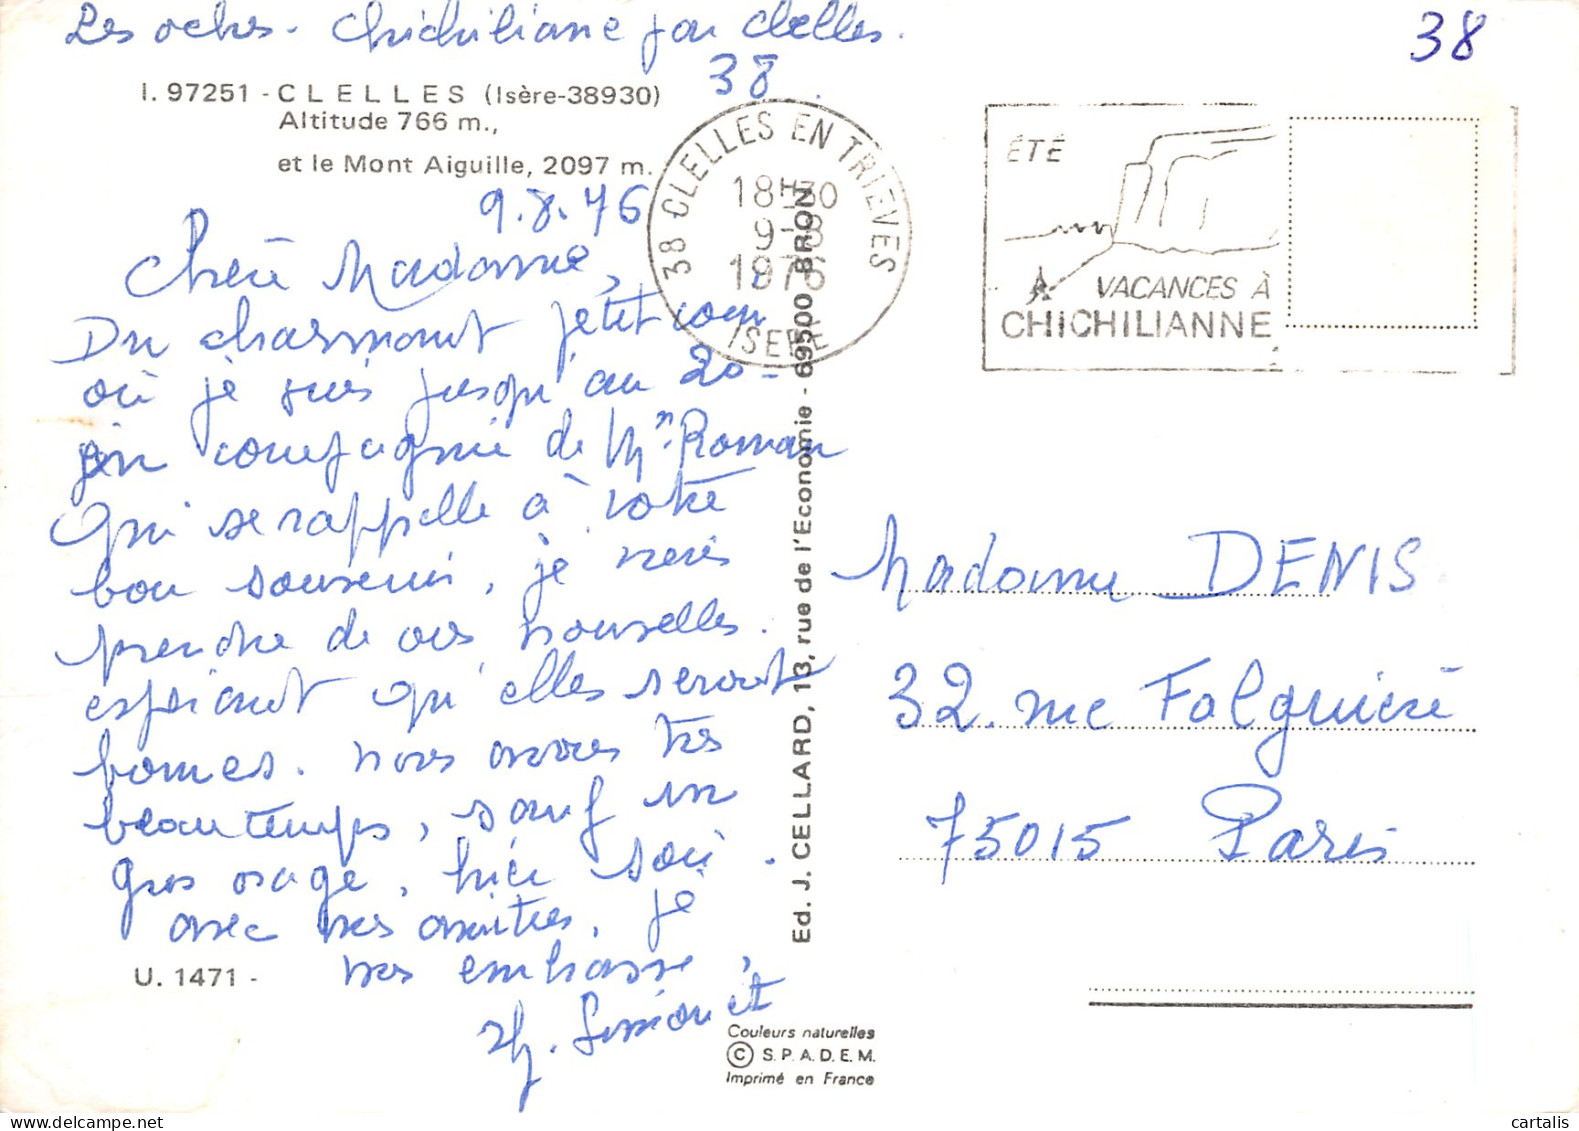 Les oches - Chichiliane par Clelles.
38
38
I. 97251 - CLELLES (Isère-38930)
Altitude 766 m.,
et le Mont Aiguille, 2097 m.
9.8.76
Chère Madame,
Du charmant petit coin
où je suis jusqu'au 20 -
en compagnie de Mme Roman
qui se rappelle à votre
bon souvenir, je viens
prendre de vos nouvelles.
espérant qu'elles seront
bonnes. nous avons très
beau temps, sauf un
gros orage, hier soir.
avec mes amitiés, je
vous embrasse,
Simonet
U. 1471 -
38 CLELLES EN TRIEVES
18H30
9-8
1976
ISERE
ÉTÉ
VACANCES À
CHICHILIANNE
Ed. J. CELLARD, 13, rue de l'Economie - 69500 BRON
Couleurs naturelles
© S.P.A.D.E.M.
Imprimé en France
Madame DENIS
32. rue Falguière
75015 Paris
cartalis